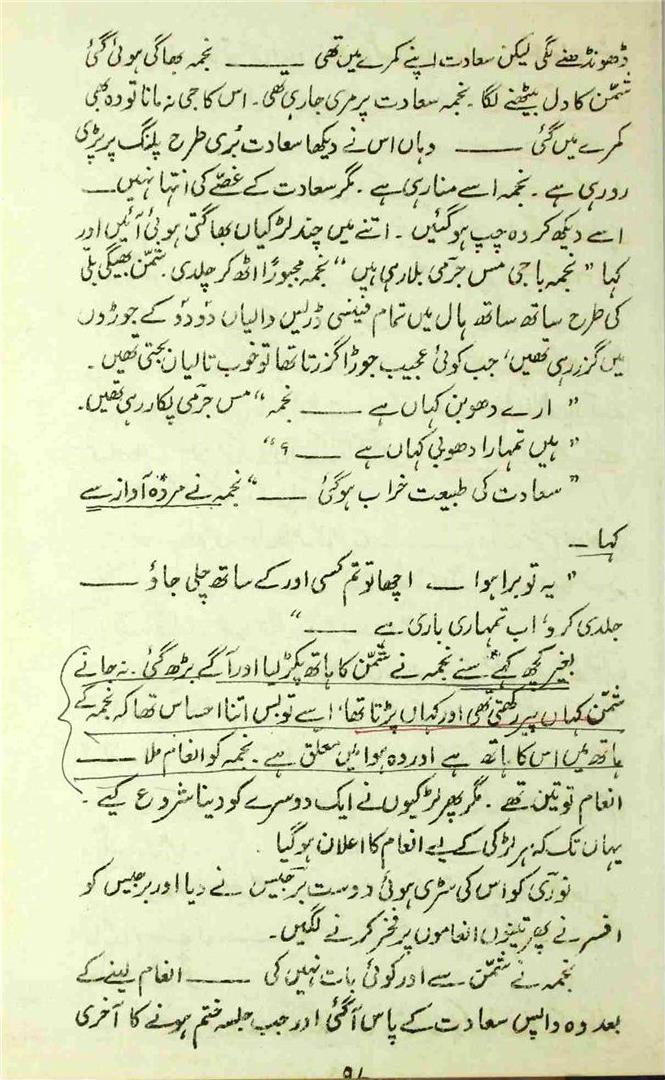 ڈھونڈھنے لگی لیکن سعادت اپنے کمرے میں تھی ــــــــ نجمہ بھاگی ہوئی گئی
شمّن کا دل بیٹھنے لگا۔ نجمہ سعادت پر مری جا رہی تھی۔ اس کا جی نہ مانا تو وہ بھی
کمرے میں گئی ــــــــ وہاں اس نے دیکھا سعادت بُری طرح پلنگ پر پڑی
رو رہی ہے۔ نجمہ اسے منا رہی ہے۔ مگر سعادت کے غصّے کی انتہا نہیں ــــ
اسے دیکھ کر وہ چپ ہو گئیں۔ اتنے میں چند لڑکیاں بھاگتی ہوئی آئیں اور
کہا ”نجمہ باجی مس جرمی بلا رہی ہیں“ نجمہ مجبوراً اٹھ کر چلدی۔ شمّن بھیگی بلّی
کی طرح ساتھ ساتھ ہال میں تمام فینسی ڈریس والیاں دَو دَو کے جوڑوں
میں گزر رہی تھیں‘ جب کوئی عجیب جوڑا گزرتا تھا تو خوب تالیاں بجتی تھیں۔
”ارے دھوبن کہاں ہے ــــــــ نجمہ“ مس جرمی پکار رہی تھیں۔
”ہیں تمہارا دھوبی کہاں ہے ــــــــ ؟“
”سعادت کی طبیعت خراب ہو گئی ــــــــ“ نجمہ نے مردہ آواز سے
کہا ــ
”یہ تو برا ہوا ــــ اچھا تو تم کسی اور کے ساتھ چلی جاؤ ــــــــ
جلدی کرو‘ اب تمہاری باری ہے ــــــــ“
بغیر کچھ کہے سنے نجمہ نے شمّن کا ہاتھ پکڑ لیا اور آگے بڑھ گئی۔ نہ جانے
شمّن کہاں پیر رکھتی تھی اور کہاں پڑتا تھا‘ اسے تو بس اتنا احساس تھا کہ نجمہ کے
ہاتھ میں اس کا ہاتھ ہے اور وہ ہوا میں معلق ہے۔ نجمہ کو انعام ملا ــــــــ
انعام تو تین تھے۔ مگر پھر لڑکیوں نے ایک دوسرے کو دینا شروع کیے۔
یہاں تک کہ ہر لڑکی کے لیے انعام کا اعلان ہو گیا۔
نوری کو اس کی سڑی ہوئی دوست برجیس نے دیا اور برجیس کو
افسر نے پھر تینوں انعاموں پر فخر کرنے لگیں۔
نجمہ نے شمّن سے اور کوئی بات نہیں کی ــــــــ انعام لینے کے
بعد وہ واپس سعادت کے پاس آ گئی اور جب جلسہ ختم ہونے کا آخری